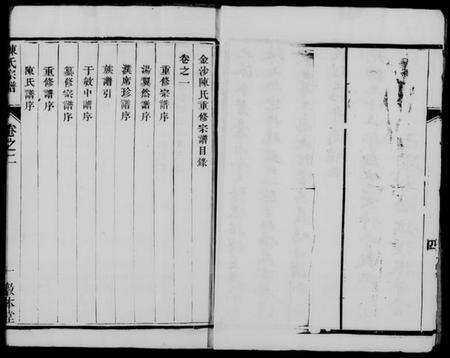 金沙陳氏重修宗譜目錄
卷之一
重修宗譜序
湯巽然譜序
濮席珍譜序
族譜引
于敏中譜序
纂修宗譜序
重修譜序
陳氏譜序
陳氏宗譜
卷之一
一
敦本堂
四